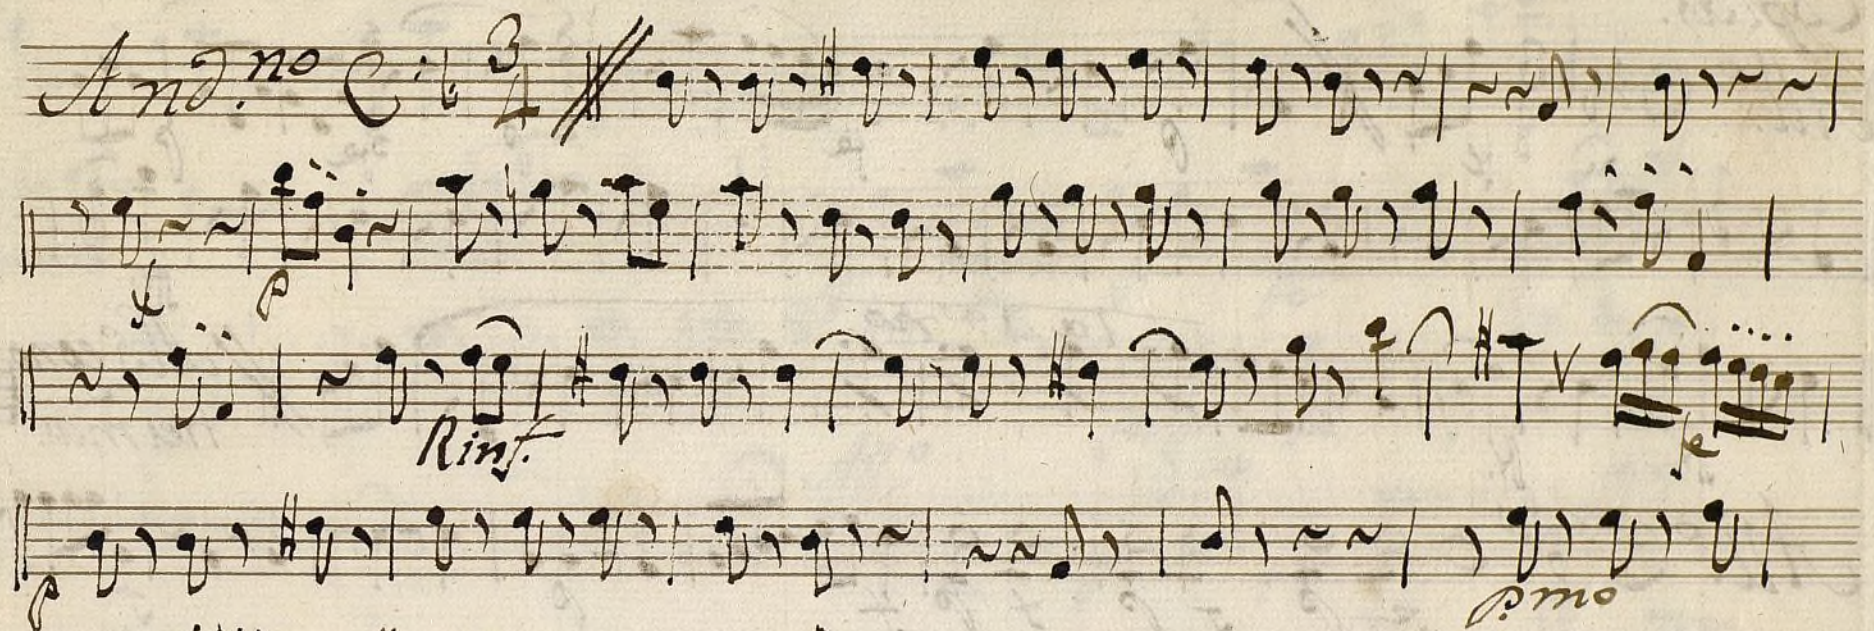 And.no C. 3/4
f p
Rinf. fe
p p.mo